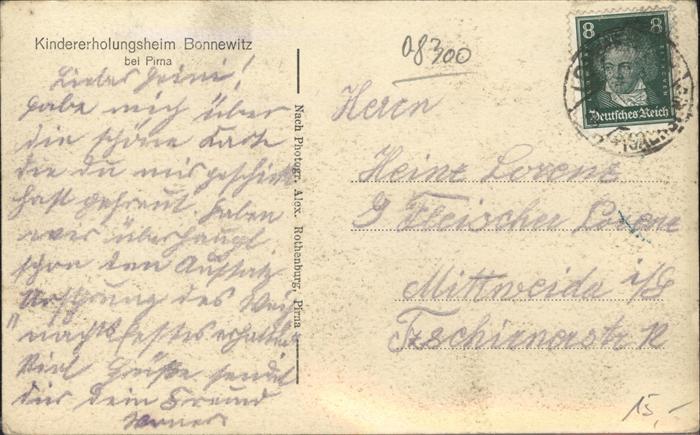 Kindererholungsheim Bonnewitz
bei Pirna
Liebes Heini!
habe mich über
die schöne Karte
die du mir geschickt
hast gefreut. Haben
wir überhaupt
schon den Aufsatz
"Ursprung des Weih
nachtsfestes erhalten
Viel Grüße sendet
dir dein Freund
Werner
Nach Photogr. Alex. Rothenburg, Pirna
08300
8 8
Deutsches Reich
Herrn
Heinz Lorenz
Fleischer Lorenz
Mittweida i/S
Tzschirnerstr
15,-